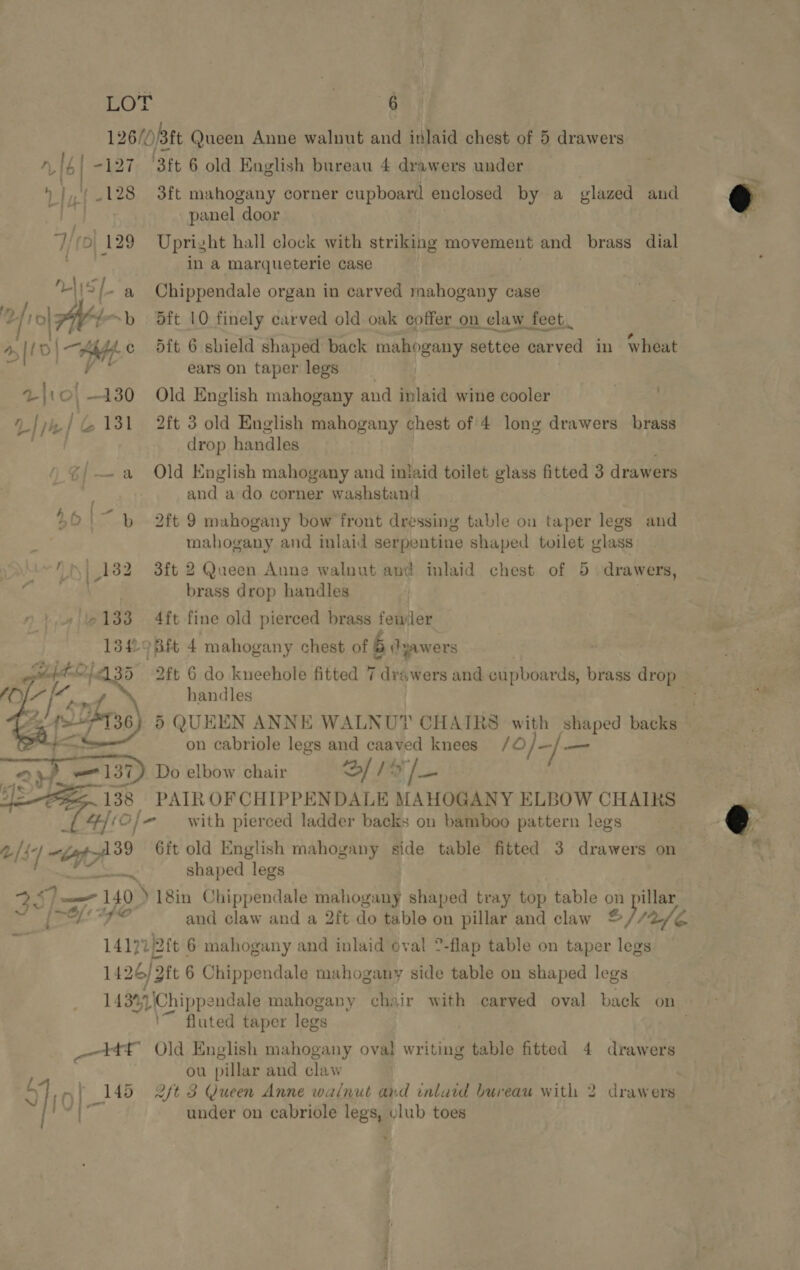 LOT 6
126 3ft Queen Anne walnut and inlaid chest of 5 drawers
127 3ft 6 old English bureau 4 drawers under
128 3ft mahogany corner cupboard enclosed by a glazed and
panel door
129 Upright hall clock with striking movement and brass dial
in a marqueterie case
a Chippendale organ in carved mahogany case
b 5ft 10 finely carved old oak coffer on claw feet
c 5ft 6 shield shaped back mahogany settee carved in wheat
ears on taper legs
130 Old English mahogany and inlaid wine cooler
131 2ft 3 old English mahogany chest of 4 long drawers brass
drop handles
a Old English mahogany and inlaid toilet glass fitted 3 drawers
and a do corner washstand
b 2ft 9 mahogany bow front dressing table on taper legs and
mahogany and inlaid serpentine shaped toilet glass
132 3ft 2 Queen Anne walnut and inlaid chest of 5 drawers,
brass drop handles
133 4ft fine old pierced brass fender
134 3ft 4 mahogany chest of 5 drawers
135 2ft 6 do kneehole fitted 7 drawers and cupboards, brass drop
handles
136 5 QUEEN ANNE WALNUT CHAIRS with shaped backs
on cabriole legs and caaved knees 10/-/-
137 Do elbow chair 3/15/-
138 PAIR OF CHIPPENDALE MAHOGANY ELBOW CHAIRS
with pierced ladder backs on bamboo pattern legs
139 6ft old English mahogany side table fitted 3 drawers on
shaped legs
140 18in Chippendale mahogany shaped tray top table on pillar
and claw and a 2ft do table on pillar and claw
141 2ft 6 mahogany and inlaid oval 2-flap table on taper legs
142 2ft 6 Chippendale mahogany side table on shaped legs
143 Chippendale mahogany chair with carved oval back on
fluted taper legs
144 Old English mahogany oval writing table fitted 4 drawers
on pillar and claw
145 2ft 3 Queen Anne walnut and inlaid bureau with 2 drawers
under on cabriole legs, club toes